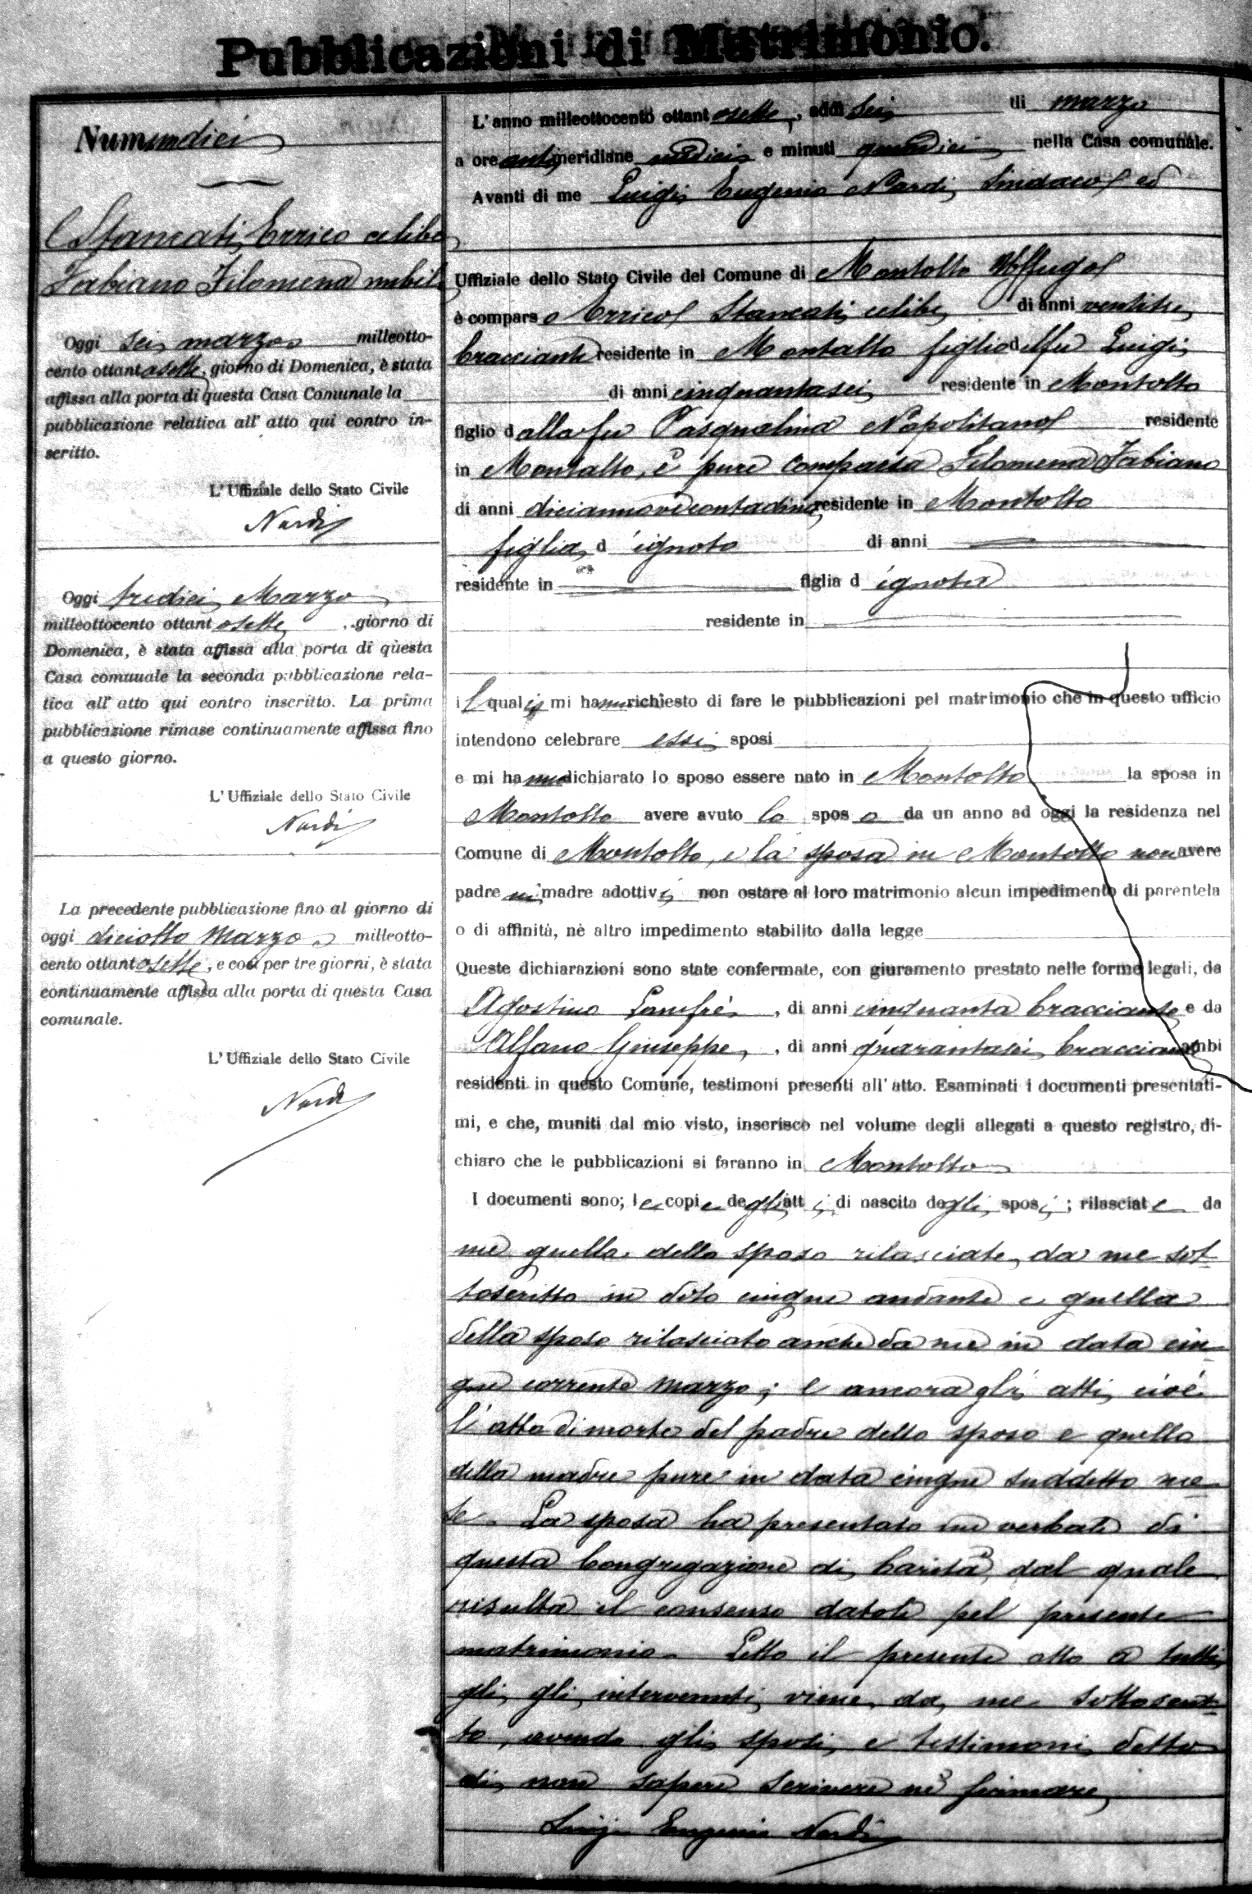 Pubblicazioni di Matrimonio.
Num. undici
Stancati Errico celibe
Fabiano Filomena nubile
Oggi sei marzo milleotto-
cento ottantasette, giorno di Domenica, è stata
affissa alla porta di questa Casa Comunale la
pubblicazione relativa all' atto qui contro in-
scritto.
L' Uffiziale dello Stato Civile
Nardi
Oggi tredici Marzo
milleottocento ottantasette, giorno di
Domenica, è stata affissa alla porta di questa
Casa comunale la seconda pubblicazione rela-
tiva all' atto qui contro inscritto. La prima
pubblicazione rimase continuamente affissa fino
a questo giorno.
L' Uffiziale dello Stato Civile
Nardi
La precedente pubblicazione fino al giorno di
oggi diciotto Marzo milleotto-
cento ottantasette, e così per tre giorni, è stata
continuamente affissa alla porta di questa Casa
comunale.
L' Uffiziale dello Stato Civile
Nardi
L' anno milleottocento ottantasette, addì sei di marzo
a ore antimeridiane undici e minuti quindici nella Casa comunale.
Avanti di me Luigi Eugenio Nardi, Sindaco ed
Uffiziale dello Stato Civile del Comune di Montalto Uffugo
è comparso Errico Stancati, celibe, di anni ventitre,
bracciante residente in Montalto figlio del fu Luigi
di anni cinquantasei residente in Montalto
figlio dalla fu Pasqualina Napolitano residente
in Montalto, è pure comparsa Filomena Fabiano
di anni diciannove contadina, residente in Montalto
figlia d'ignoto di anni
residente in figlia d ignota
residente in
i quali mi hanno richiesto di fare le pubblicazioni pel matrimonio che in questo ufficio
intendono celebrare essi sposi
e mi hanno dichiarato lo sposo essere nato in Montalto la sposa in
Montalto avere avuto lo sposo da un anno ad oggi la residenza nel
Comune di Montalto, e la sposa in Montalto non avere
padre ni madre adottivi non ostare al loro matrimonio alcun impedimento di parentela
o di affinità, nè altro impedimento stabilito dalla legge
Queste dichiarazioni sono state confermate, con giuramento prestato nelle forme legali, da
Agostino Lanfrè, di anni cinquanta bracciante e da
Alfano Giuseppe, di anni quarantasei, bracciante ambi
residenti in questo Comune, testimoni presenti all' atto. Esaminati i documenti presentati-
mi, e che, muniti dal mio visto, inserisco nel volume degli allegati a questo registro, di-
chiaro che le pubblicazioni si faranno in Montalto
I documenti sono; le copie degli atti di nascita degli sposi; rilasciate da
me quella dello sposo rilasciate da me sot-
toscritto in dato cinque andante e quella
della sposa rilasciato anche da me in data cin-
que corrente marzo; e ancora gli atti, cioè
l' atto di morte del padre dello sposo e quello
della madre pure in data cinque suddetto me-
se. La sposa ha presentato un verbale di
questa Congregazione di Carità dal quale
risulta il consenso datole pel presente
matrimonio. Letto il presente atto a tutti
gli gli intervenuti, viene da me sottoscrit-
to, avendo gli sposi e testimoni detto
di non sapere scrivere nè firmare
Luigi Eugenio Nardi